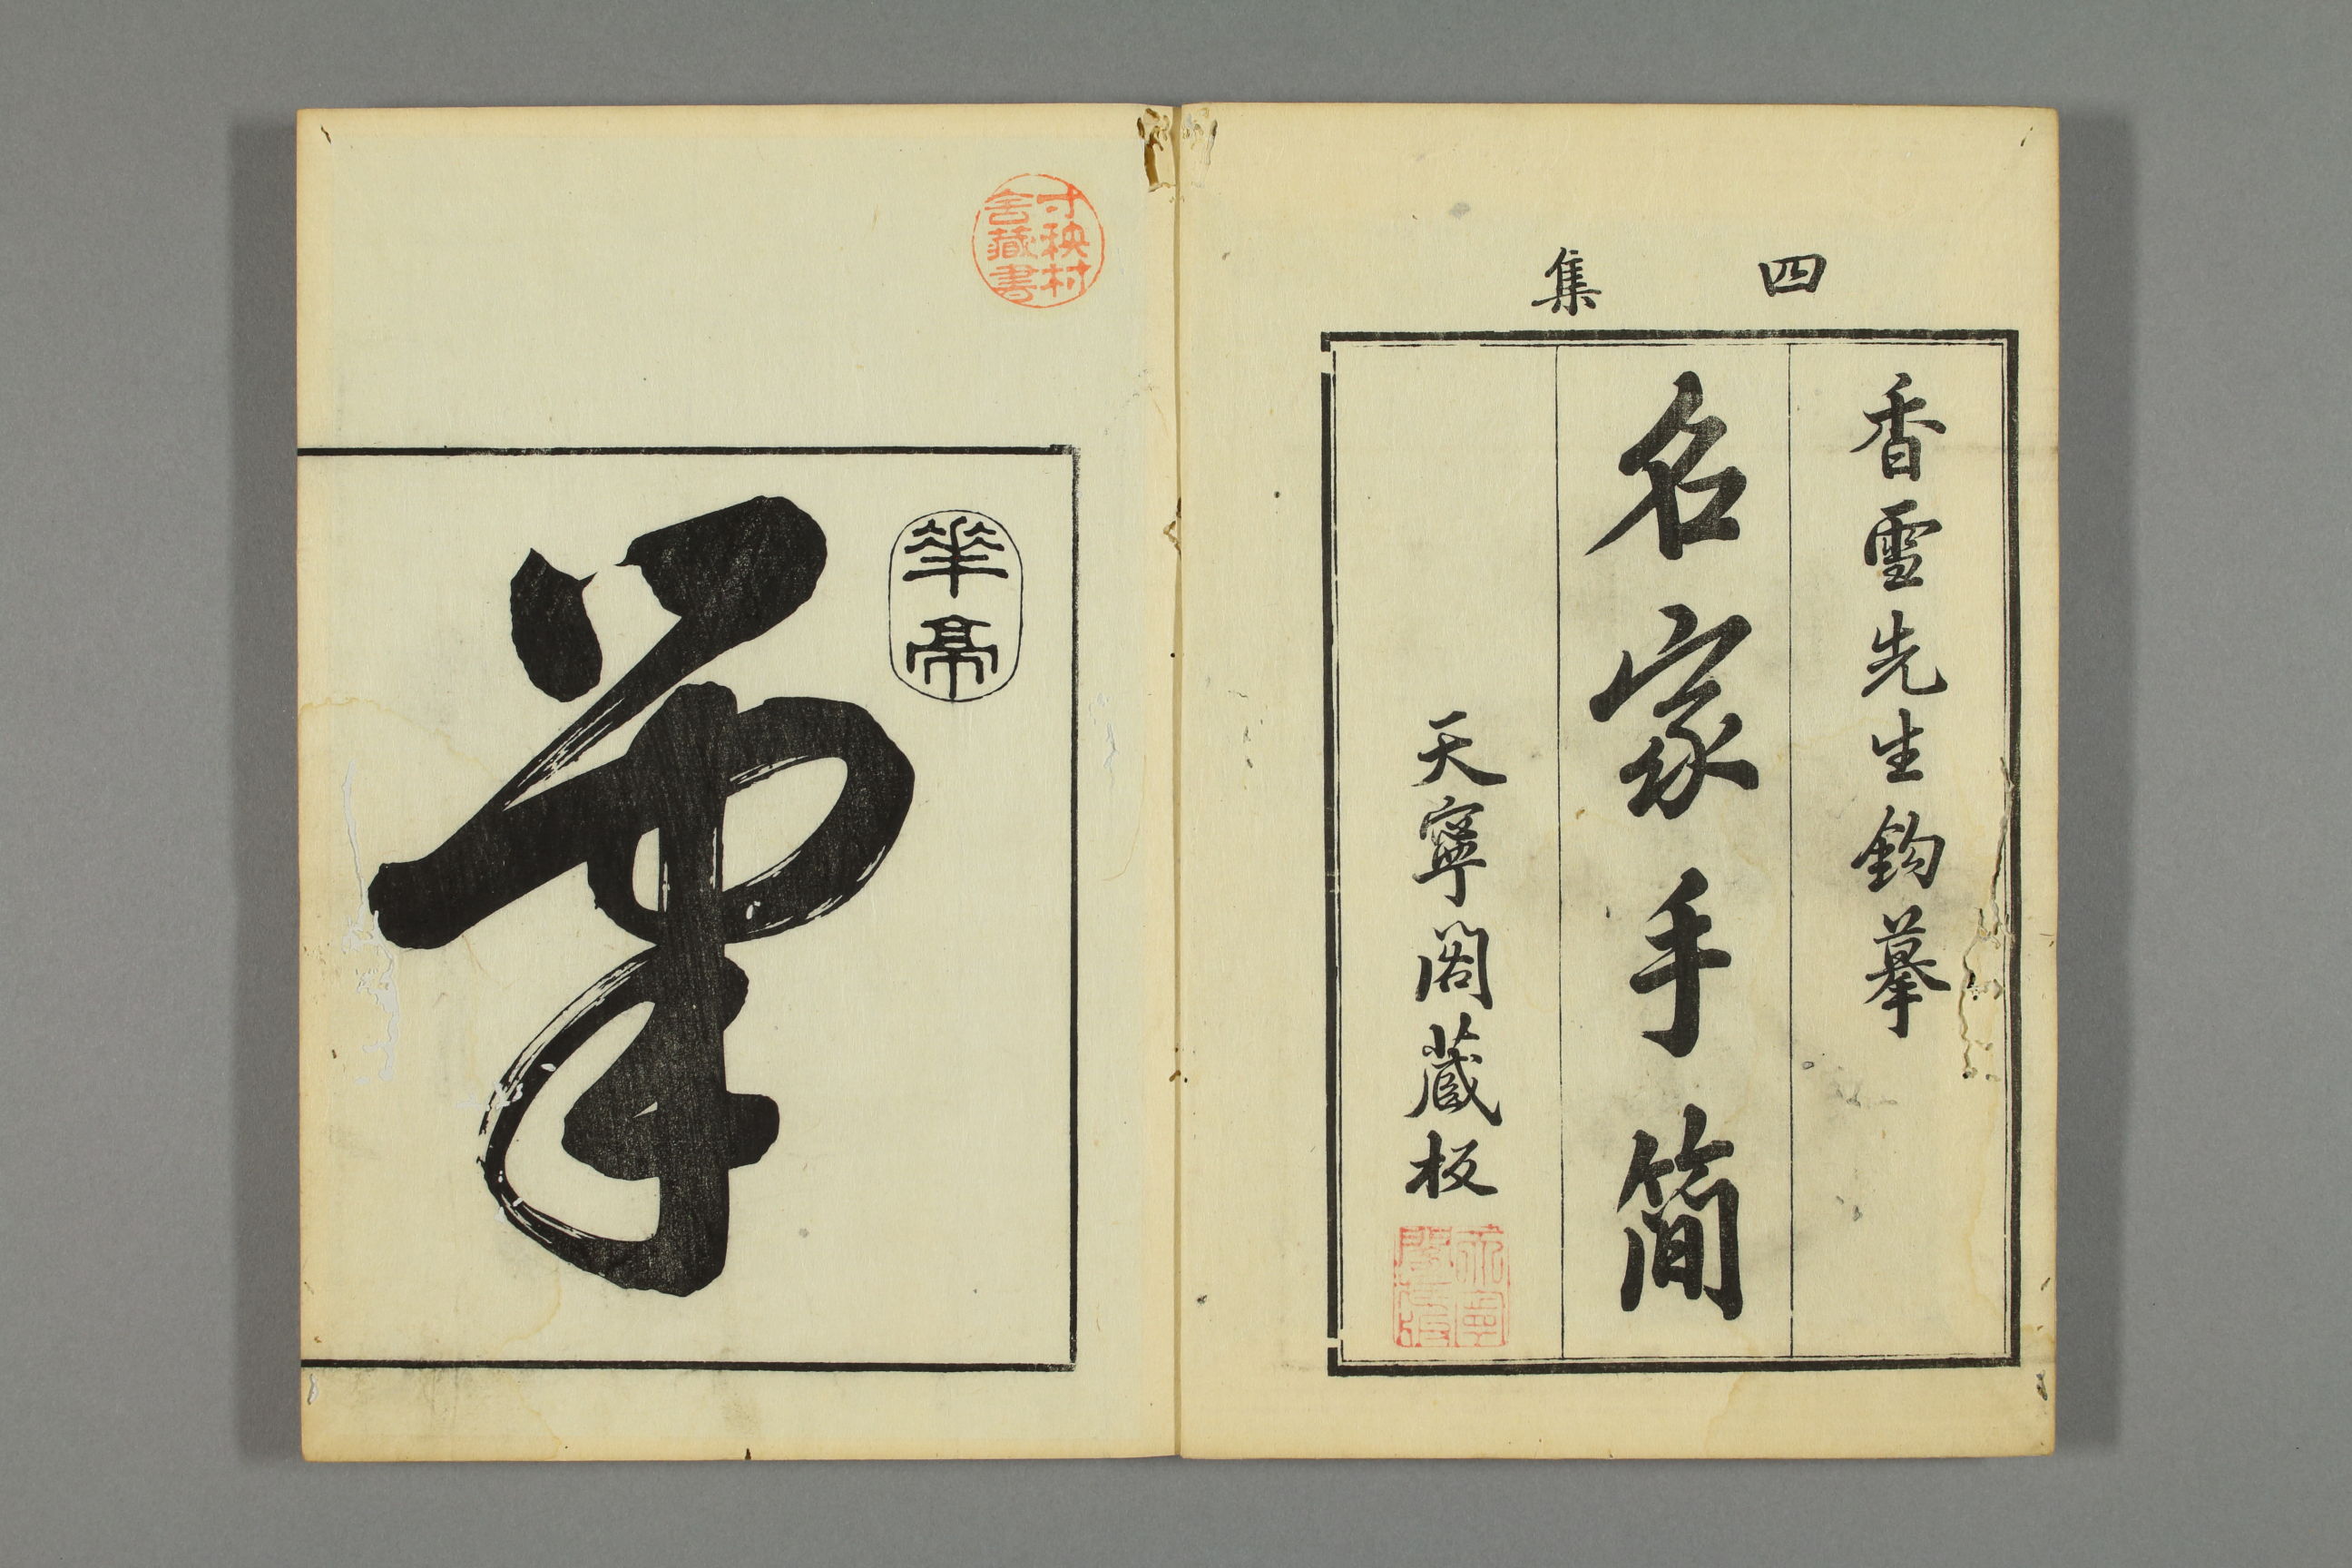 四集
香雪先生鈎摹
名家手簡
天寧閣蔵板
寸秧村
舍藏書
華亭
筆